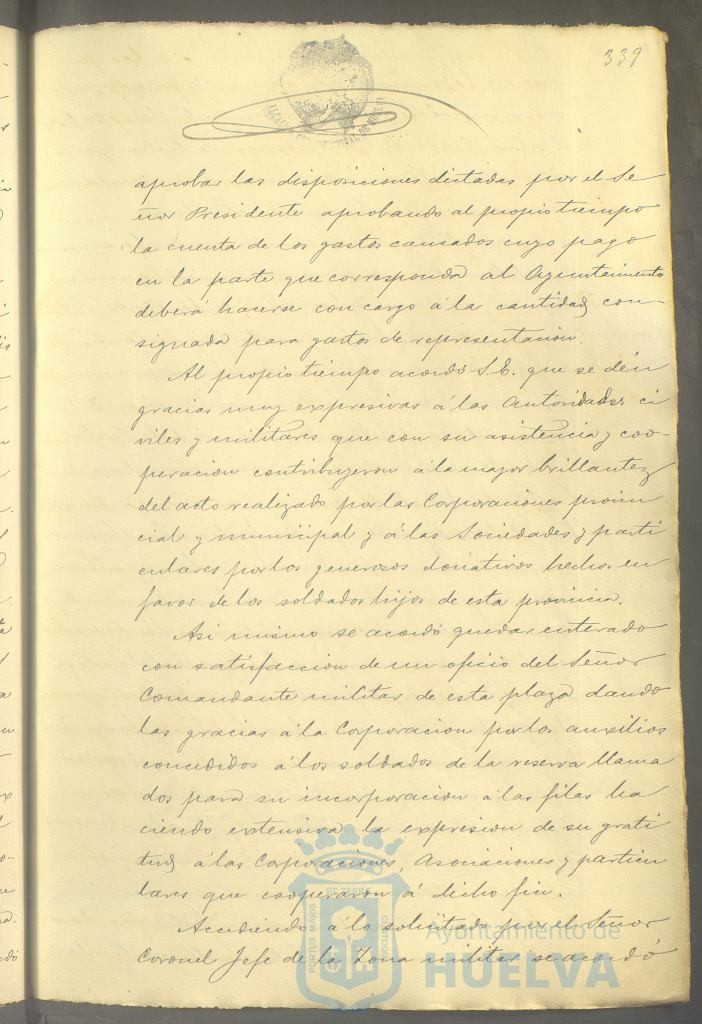 339
aprobar las disposiciones dictadas por el Se
ñor Presidente aprobando al propio tiempo
la cuenta de los gastos causados cuyo pago
en la parte que corresponda al Ayuntamiento
deberá hacerse con cargo á la cantidad con-
signada para gastos de representación.
Al propio tiempo acordó S.E. que se dén
gracias muy expresivas á las Autoridades ci
viles y militares que con su asistencia y coo-
peracion contribuyeron á la mayor brillantez
del acto realizado por las Corporaciones provin
cial y municipal y á las Sociedades y parti
culares por los generosos donativos hechos en
favor de los soldados hijos de esta provincia.
Asi mismo se acordó quedar enterado
con satisfaccion de un oficio del Señor
Comandante militar de esta plaza dando
las gracias á la Corporacion por los auxilios
concedidos á los soldados de la reserva llama
dos para su incorporacion á las filas ha
ciendo extensiva la expresion de su grati
tud á las Corporaciones, Asociaciones y particu
lares que cooperaron á dicho fin.
Accediendo á lo solicitado por el Señor
Coronel Jefe de la Zona militar se acordó
PORTUS MARIS
ET TERRE
CUSTODIA
Ayuntamiento de
HUELVA